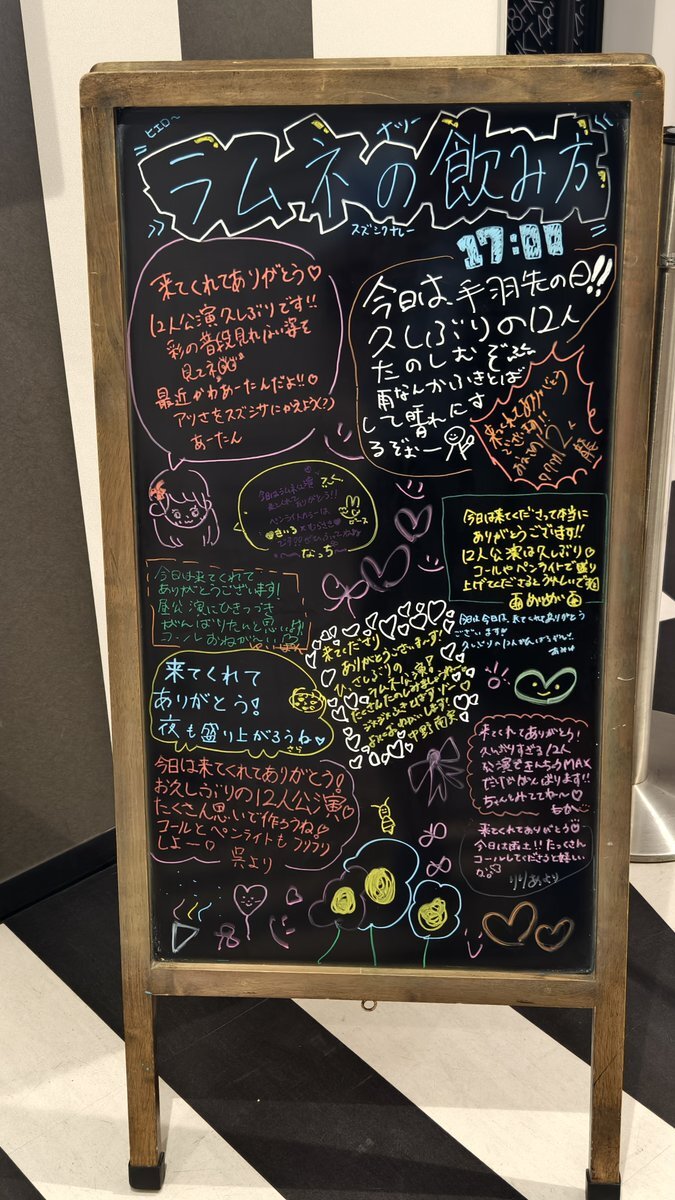 ヒエロ〜
ナツー
ラムネの飲み方
スズシクナレー
17:00
来てくれてありがとう♡
12人公演久しぶりです!!
彩の普段見れない姿を
見てネ
最近かわあーたんだよ!!♡
アツさをスズシサにかえよう(?)
あーたん
今日は手羽先の日!!
久しぶりの12人
たのしむぞ
雨なんかふきとば
して晴れにす
るぞぉー
来てくれてありがとう
ございます!!
今日はラムネ公演
来てくれてありがとう!!
ペンライトカラーは
きいろ×むらさき
なっち
ピース
今日は来てくださって本当に
ありがとうございます!!
12人公演は久しぶり♡
コールやペンライトで盛り
上げてくださるとうれしいです
今日は来てくれて
ありがとうございます!
昼公演にひきつづき
がんばりたいと思います!
コールおねがい♡
今日は今日は、来てくれてありがとう
ございます
来てくれて
ありがとう!
夜も盛り上がろうね♡
さら
来てくださり
ありがとうございます!
ひさしぶりの
ラムネ公演!
中野南実
今日は来てくれてありがとう!
お久しぶりの12人公演♡
たくさん思いで作ろうね!
コールとペンライトもフリフリ
しよー♡
呉より
来てくれてありがとう!
久しぶりすぎる12人
公演できんちょうMAX
だけどがんばります!!
ちゃんとみててね〜♡
もか
来てくれてありがとう♡
今日は雨土!!たっくさん
コールしてくださると嬉しい
な♡
りりあより